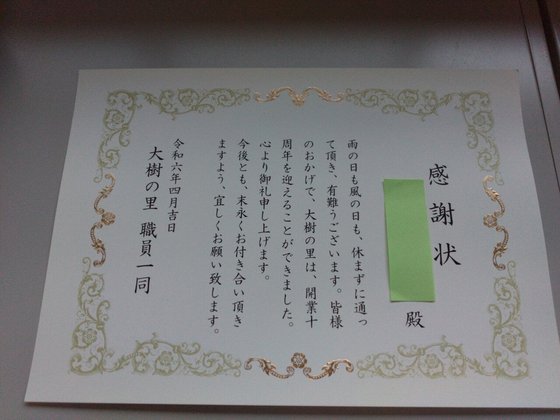 感謝状
殿
雨の日も風の日も、休まずに通っ
て頂き、有難うございます。皆様
のおかげで、大樹の里は、開業十
周年を迎えることができました。
心より御礼申し上げます。
今後とも、末永くお付き合い頂き
ますよう、宜しくお願い致します。
令和六年四月吉日
大樹の里 職員一同